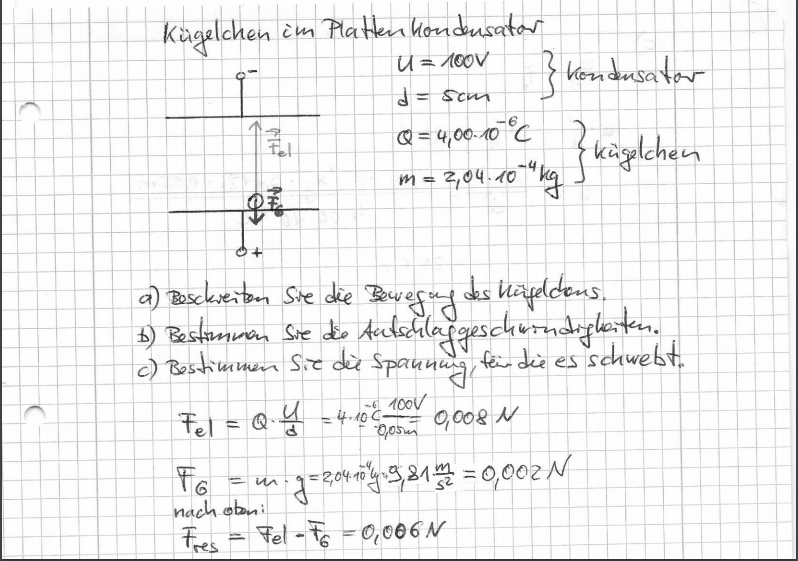 Kügelchen im Plattenkondensator
U = 100V
d = 5cm
} Kondensator
Q = 4,00·10⁻⁶ C
m = 2,04·10⁻⁴ kg
} Kügelchen
-
F⃗el
F⃗G
+
a) Beschreiben Sie die Bewegung des Kügelchens.
b) Bestimmen Sie die Aufschlaggeschwindigkeiten.
c) Bestimmen Sie die Spannung, für die es schwebt.
Fel = Q · U/d = 4·10⁻⁶C 100V/0,05m = 0,008 N
FG = m · g = 2,04·10⁻⁴kg · 9,81 m/s² = 0,002 N
nach oben:
Fres = Fel - FG = 0,006 N